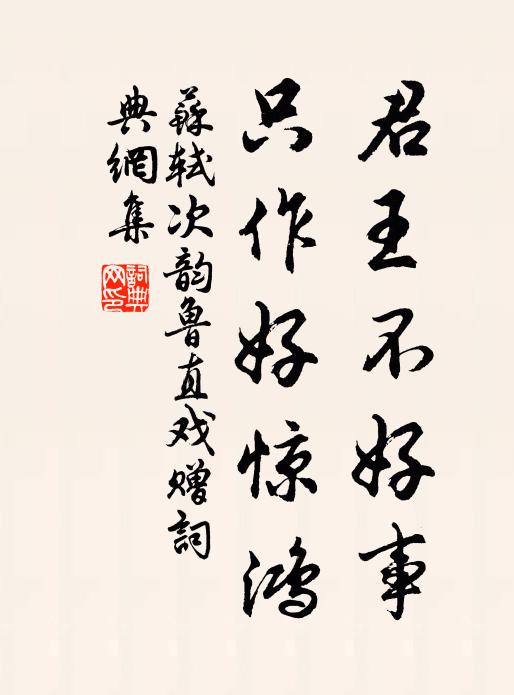 君王不好事
只作好惊鸿
蘇轼次韵魯直戏赠詞
典網集
詞典
网印